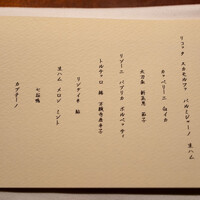 リコッタ スカモルツァ パルミジャーノ 生ハム
カッペリーニ 白イカ
水万蔵 新玉葱 茄子
リゾーニ パプリカ ポルペッティ
トルヴェロ 豚 万願寺唐辛子
リングイネ 鮎
生ハム メロン ミント
七谷鴨
カプチーノ